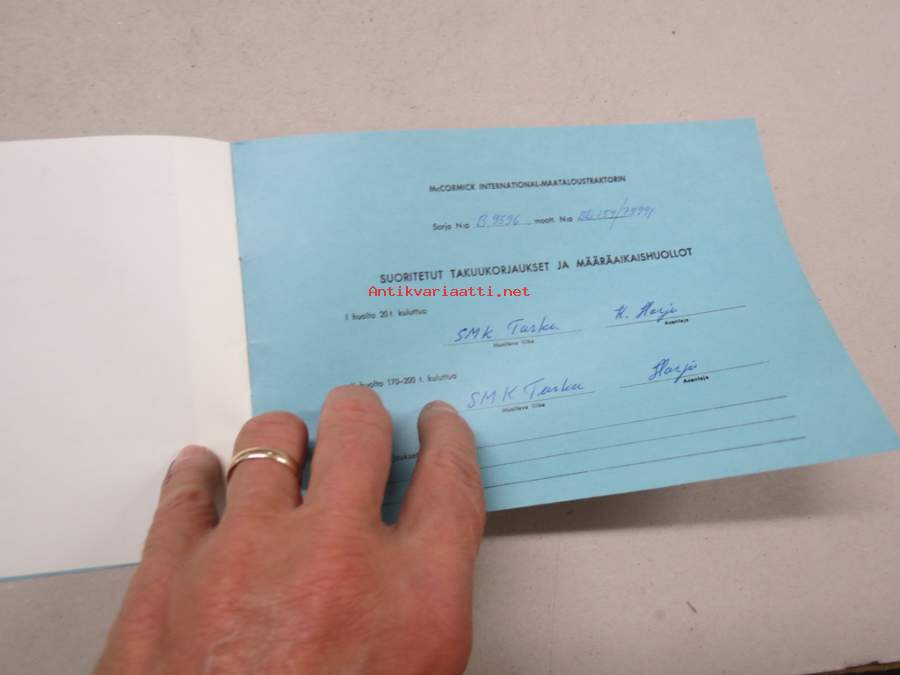 McCORMICK INTERNATIONAL-MAATALOUSTRAKTORIN
Sarja N:o B.9596, moott. N:o BD 154/79991
SUORITETUT TAKUUKORJAUKSET JA MÄÄRÄAIKAISHUOLLOT
Antikvariaatti.net
I huolto 20 t. kuluttua
SMK Turku K. Harju
Huoltava liike Asentaja
huolto 170–200 t. kuluttua
SMK Turku Harju
Huoltava liike Asentaja